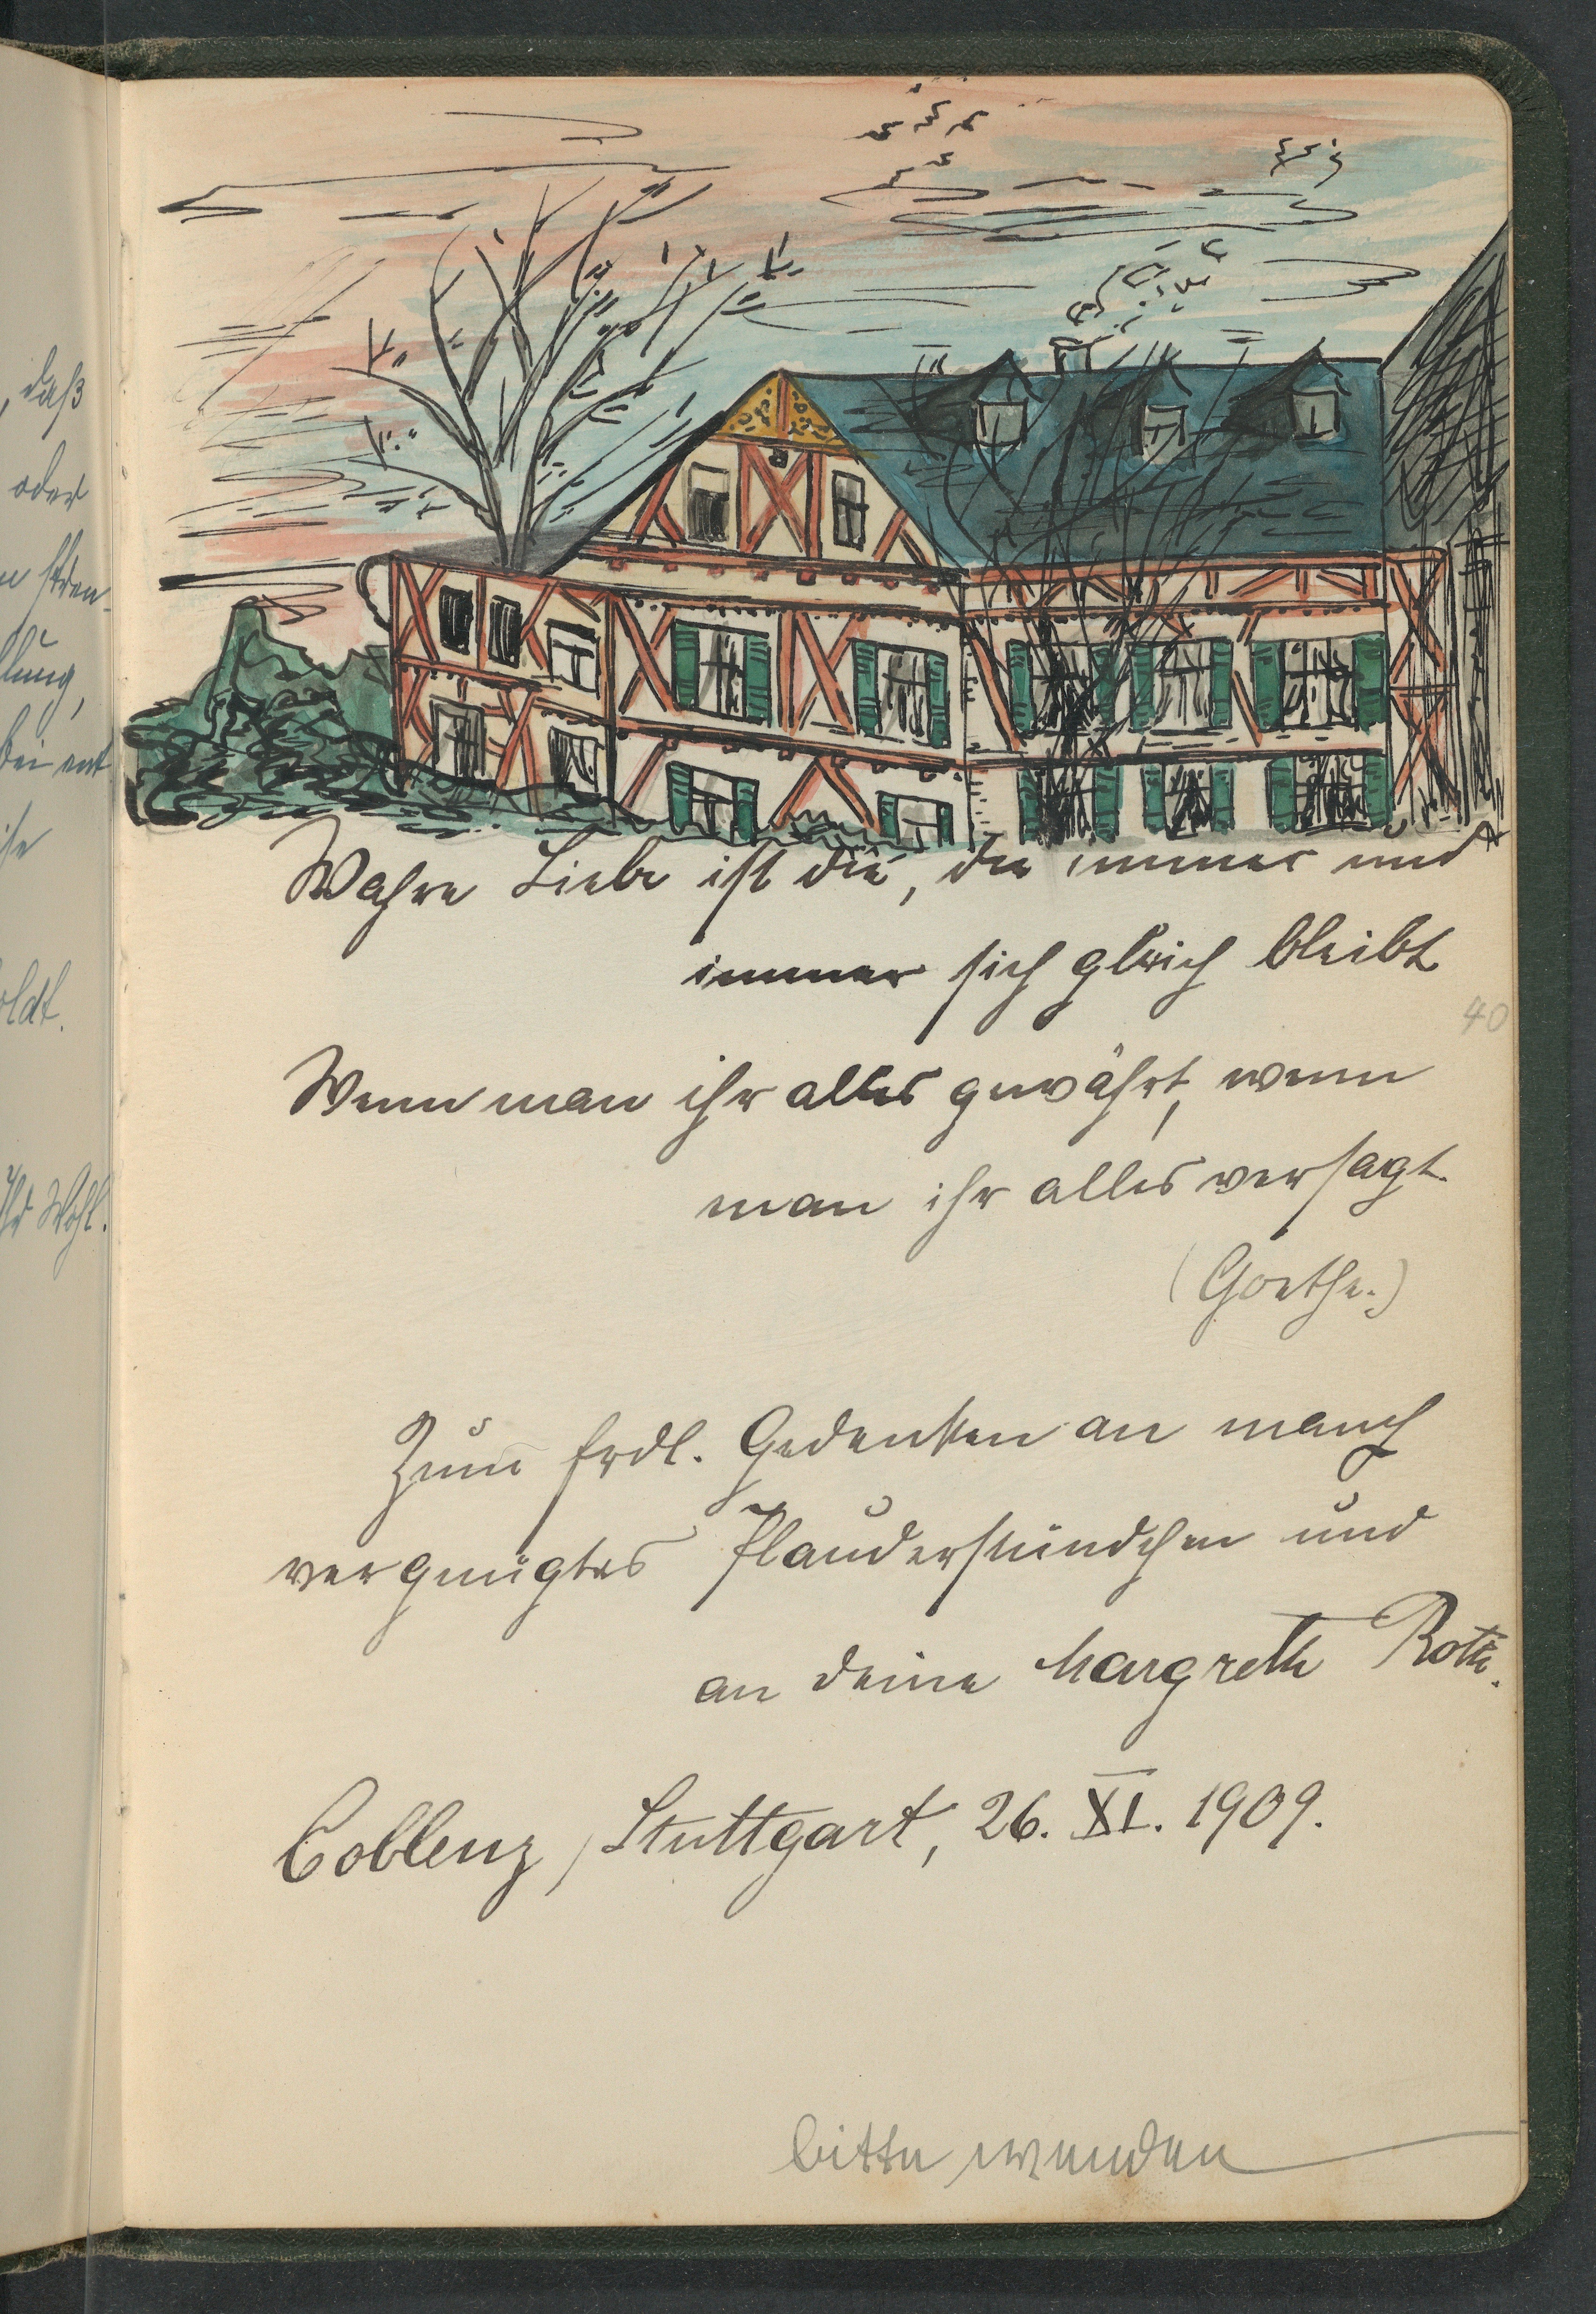 , daß
oder
lung,
bei ent
oldt.
Ihr Wohl.
Wahre Liebe ist die, die immer und
immer sich gleich bleibt
40
Wenn man ihr alles gewährt, wenn
man ihr alles versagt.
(Goethe.)
Zum frdl. Gedenken an manch
vergnügtes Plauderstündchen und
an deine Margreth Roth.
Coblenz / Stuttgart, 26. XI. 1909.
bitte wenden